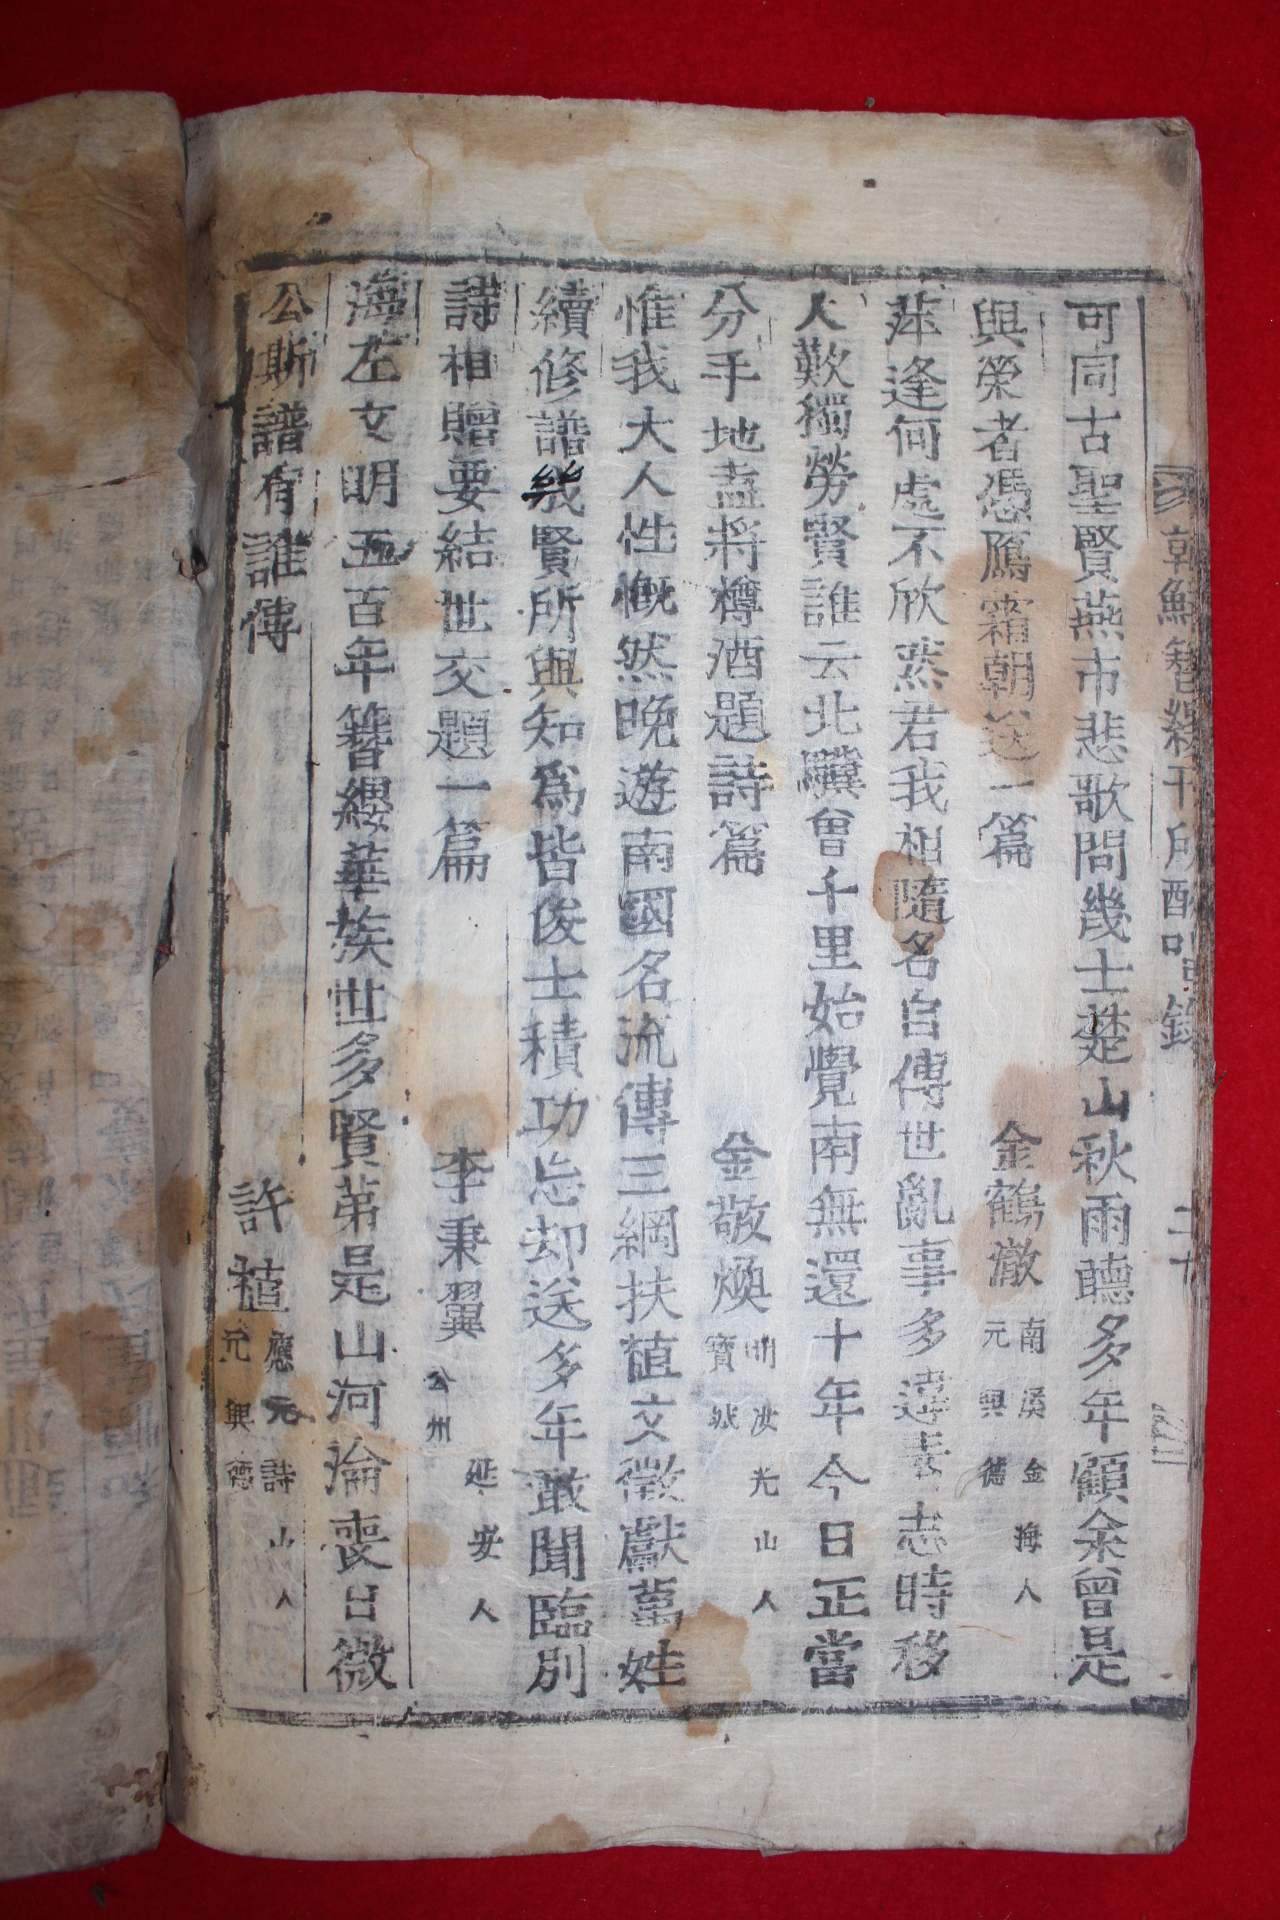 朝鮮簪纓刊所酬唱錄 二十
可同古聖賢燕市悲歌問幾士楚山秋雨聽多年顧余曾是
與榮者憑鴈霜朝送一篇 金鶴澈 南溪金海人 元興德
萍逢何處不欣然君我相隨名自傳世亂事多違素志時移
人歎獨勞賢誰云北驥曾千里始覺南無還十年今日正當
分手地盍將樽酒題詩篇 金敬煥 明汝光山人 寶城
惟我大人性慨然晩遊南國名流傳三綱扶植文徵獻萬姓
續修譜幾賢所與知爲皆俊士積功忘却送多年敢聞臨別
詩相贈要結世交題一篇 李秉翼 延安人 公州
海左文明五百年簪纓華族世多賢第是山河淪喪日微
公斯譜有誰傳 許植 應元詩山人 元興德